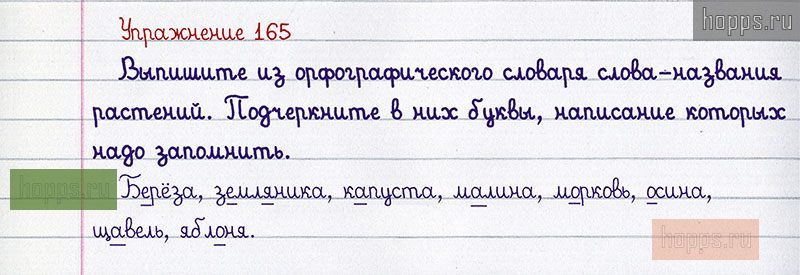 hopps.ru
Упражнение 165
Выпишите из орфографического словаря слова-названия
растений. Подчеркните в них буквы, написание которых
надо запомнить.
hopps.ru
Берёза, земляника, капуста, малина, морковь, осина,
щавель, яблоня.
hopps.ru